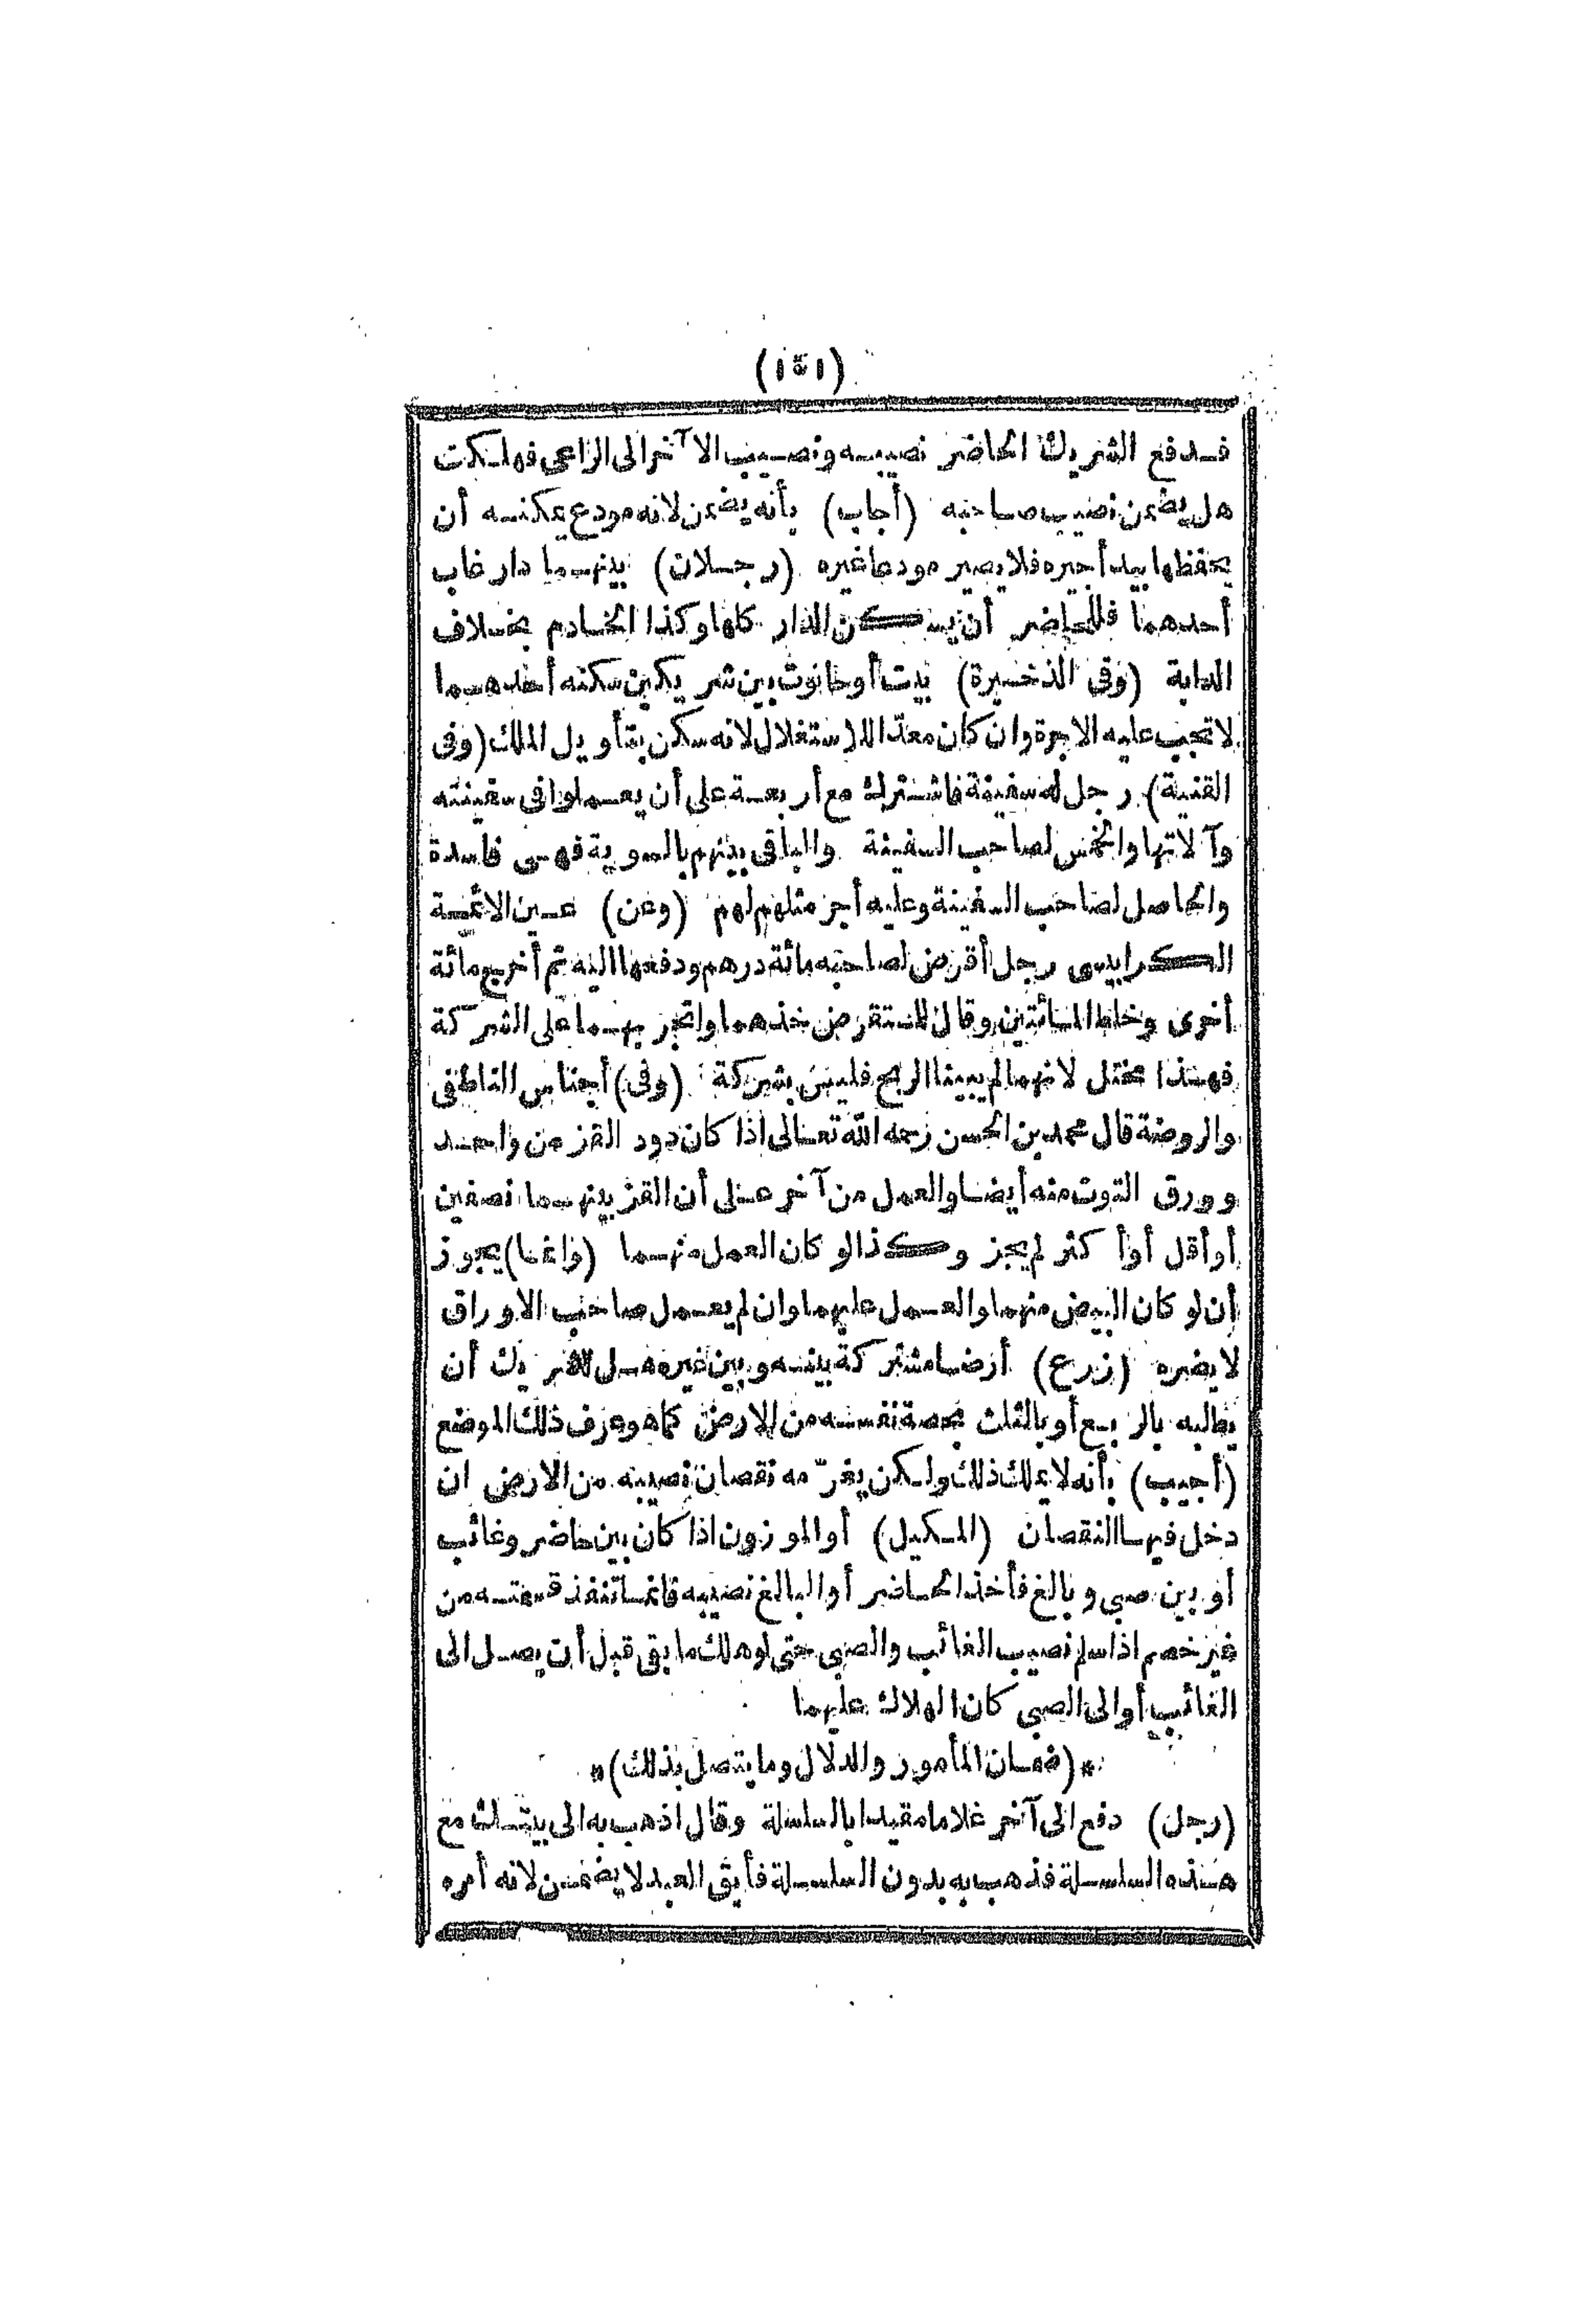 (١٥١)
فدفع الشريك الحاضر نصيبه ونصيب الآخر الى الراعى فهلكت
هل يضمن نصيب صاحبه (أجاب) بأنه يضمن لانه مودع يمكنه أن
يحفظها بيد أجيره فلا يصير مودعا غيره (رجلان) بينهما دار غاب
أحدهما فللحاضر أن يسكن الدار كلها وكذا الخادم بخلاف
الدابة (وفى الذخيرة) بيت أو حانوت بين شريكين سكنه أحدهما
لا تجب عليه الاجرة وان كان معدّا للاستغلال لانه سكن بتأويل الملك (وفى
القنية) رجل له سفينة فاشترك مع أربعة على أن يعملوا فى سفينته
وآلاتها والخمس لصاحب السفينة والباقى بينهم بالسوية فهى فاسدة
والحاصل لصاحب السفينة وعليه أجر مثلهم لهم (وعن) عين الائمة
الكرابيسى رجل أقرض لصاحبه مائة درهم ودفعها اليه ثم أخرج مائة
أخرى وخلط المائتين وقال للمستقرض خذهما واتجر بهما على الشركة
فهذا مختل لانهما لم يبينا الربح فليس بشركة (وفى) أجناس الناطفى
والروضة قال محمد بن الحسن رحمه الله تعالى اذا كان دود القز من واحد
وورق التوت منه أيضا والعمل من آخر على أن القز بينهما نصفين
أو أقل أو أكثر لم يجز وكذا لو كان العمل منهما (وانما) يجوز
أن لو كان البيض منهما والعمل عليهما وان لم يعمل صاحب الاوراق
لا يضره (زرع) أرضا مشتركة بينه وبين غيره هل للشريك أن
يطالبه بالربع أو بالثلث بحصة نفسه من الارض كما هو عرف ذلك الموضع
(أجيب) بأنه لا يملك ذلك ولكن يغرّمه نقصان نصيبه من الارض ان
دخل فيها النقصان (المكيل) أو الموزون اذا كان بين حاضر وغائب
أو بين صبى وبالغ فأخذ الحاضر أو البالغ نصيبه فانما تنفذ قسمته من
غير خصم اذا سلم نصيب الغائب والصبى حتى لو هلك ما بقى قبل أن يصل الى
الغائب أو الى الصبى كان الهلاك عليهما
*(ضمان المأمور والدلال وما يتصل بذلك)*
(رجل) دفع الى آخر غلاما مقيدا بالسلسلة وقال اذهب به الى بيتك مع
هذه السلسلة فذهب به بدون السلسلة فأبق العبد لا يضمن لانه أمره